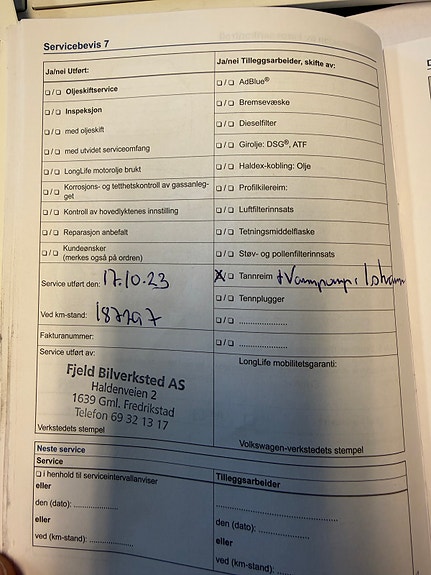 Servicebevis 7
Ja/nei Utført:
❏ / ❏ Oljeskiftservice
❏ / ❏ Inspeksjon
❏ / ❏ med oljeskift
❏ / ❏ med utvidet serviceomfang
❏ / ❏ LongLife motorolje brukt
❏ / ❏ Korrosjons- og tetthetskontroll av gassanleg-
get
❏ / ❏ Kontroll av hovedlyktenes innstilling
❏ / ❏ Reparasjon anbefalt
❏ / ❏ Kundeønsker
(merkes også på ordren)
Service utført den: 17.10.23
Ved km-stand: 187297
Fakturanummer:
Service utført av:
Fjeld Bilverksted AS
Haldenveien 2
1639 Gml. Fredrikstad
Telefon 69 32 13 17
Verkstedets stempel
Ja/nei Tilleggsarbeider, skifte av:
❏ / ❏ AdBlue®
❏ / ❏ Bremsevæske
❏ / ❏ Dieselfilter
❏ / ❏ Girolje: DSG®, ATF
❏ / ❏ Haldex-kobling: Olje
❏ / ❏ Profilkilereim:
❏ / ❏ Luftfilterinnsats
❏ / ❏ Tetningsmiddelflaske
❏ / ❏ Støv- og pollenfilterinnsats
X / ❏ Tannreim +Vannpumpe
❏ / ❏ Tennplugger
❏ / ❏ ....................
❏ / ❏ ....................
LongLife mobilitetsgaranti:
Volkswagen-verkstedets stempel
Neste service
Service
❏ i henhold til serviceintervallanviser
eller
den (dato): ....................
eller
ved (km-stand): ....................
Tilleggsarbeider
....................
den (dato): ....................
eller
ved (km-stand): ....................